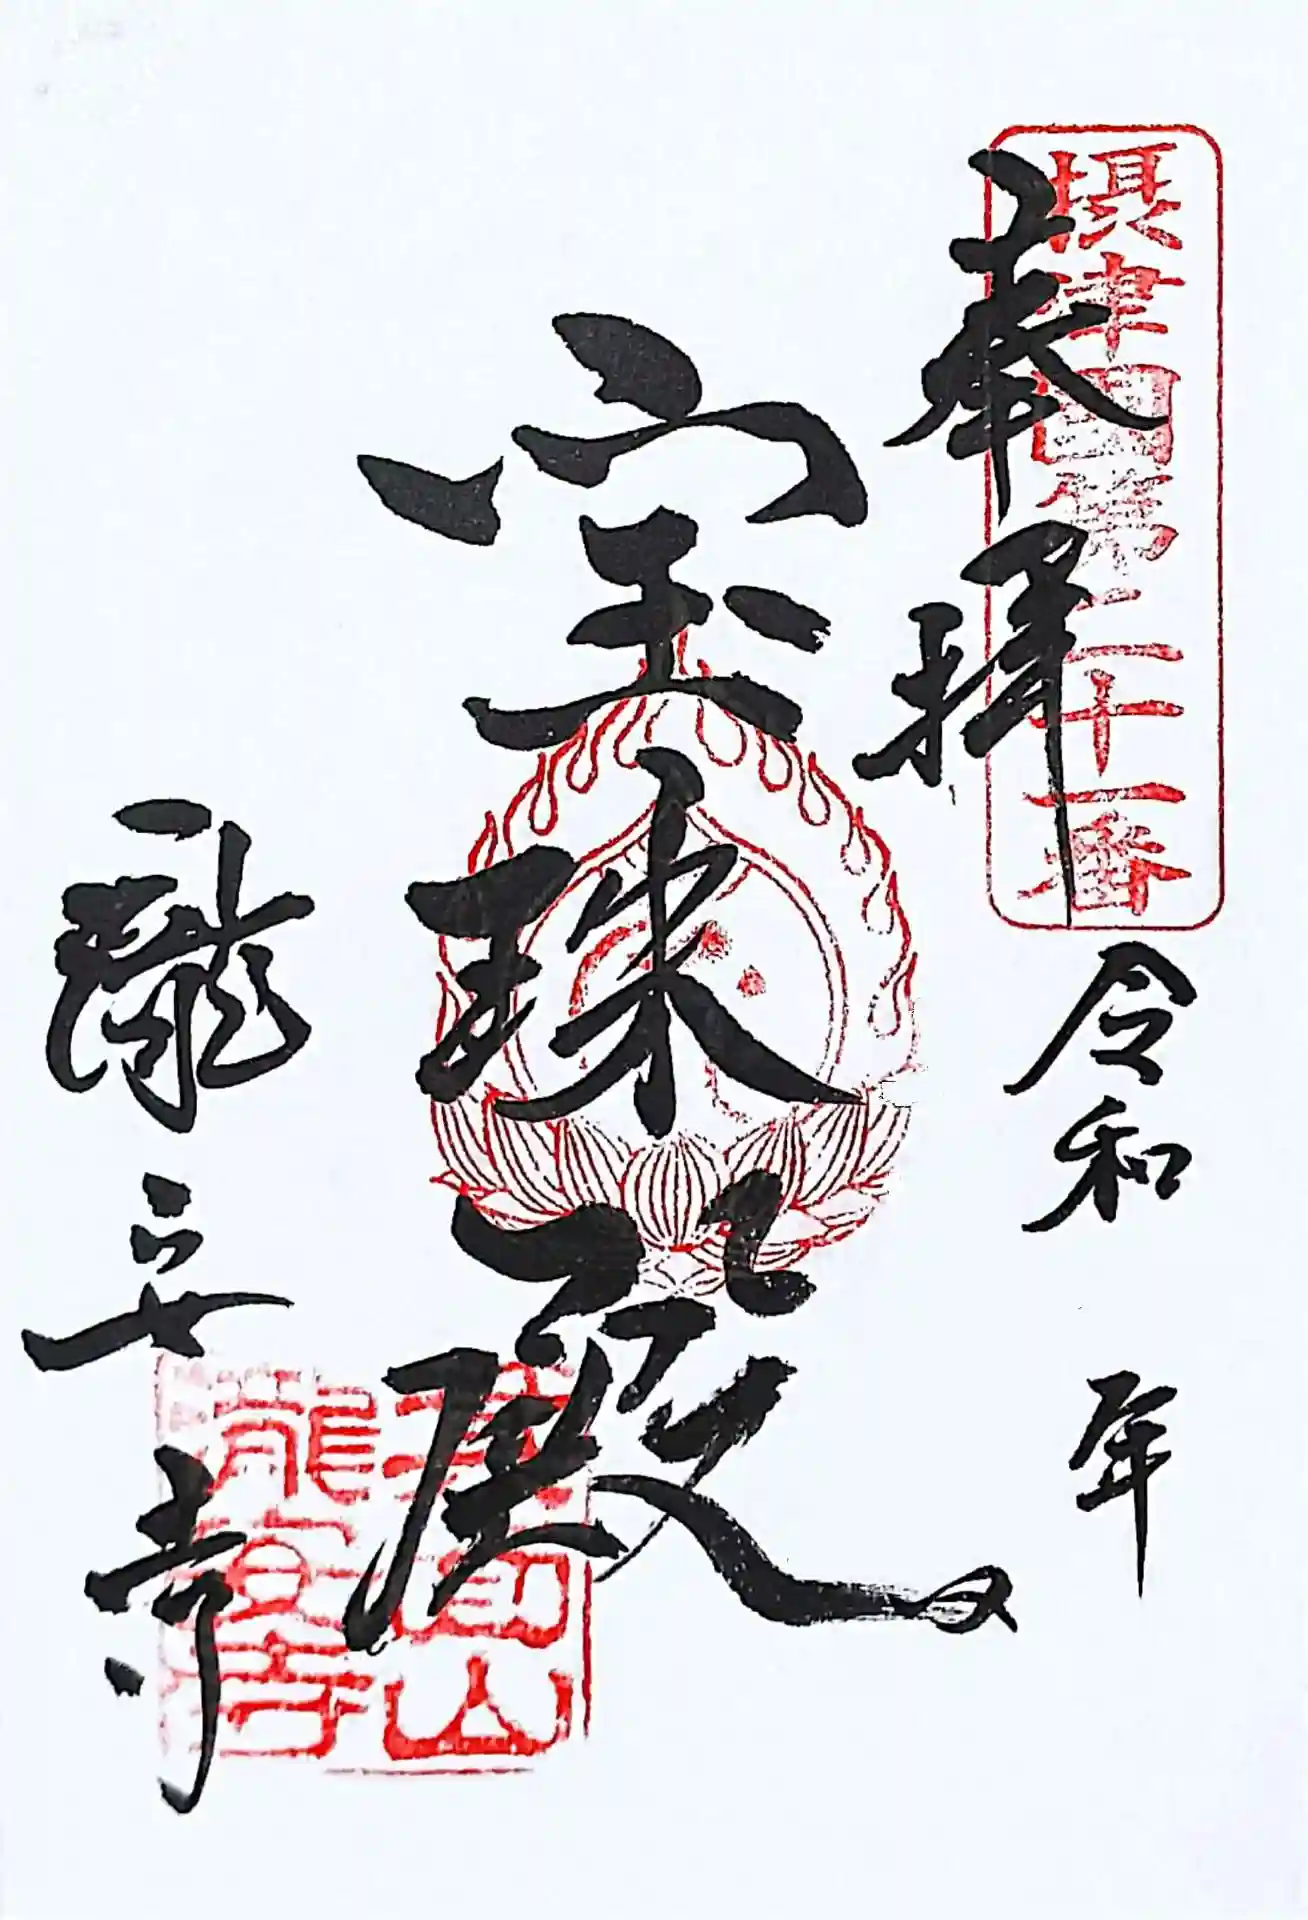 摂津国第二十一番
奉拝
令和 年
宝珠殿
瀧安寺
箕面山
瀧安寺